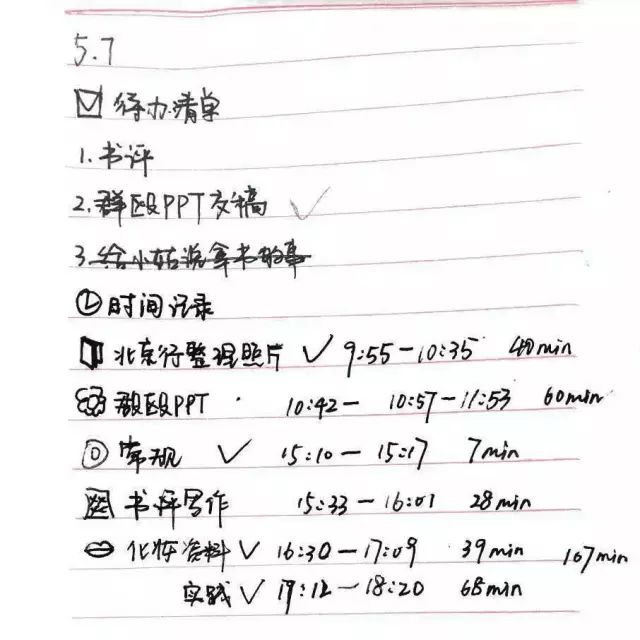 5.7
待办清单
1.书评
2.群殴PPT交稿 ✓
3.给小姑说拿书的事
时间记录
北京行整理照片 ✓ 9:55-10:35 40min
群殴PPT · 10:42- 10:57-11:53 60min
常规 ✓ 15:10-15:17 7min
书评写作 15:33-16:01 28min
化妆资料 ✓ 16:30-17:09 39min 107min
实践 ✓ 17:12-18:20 68min